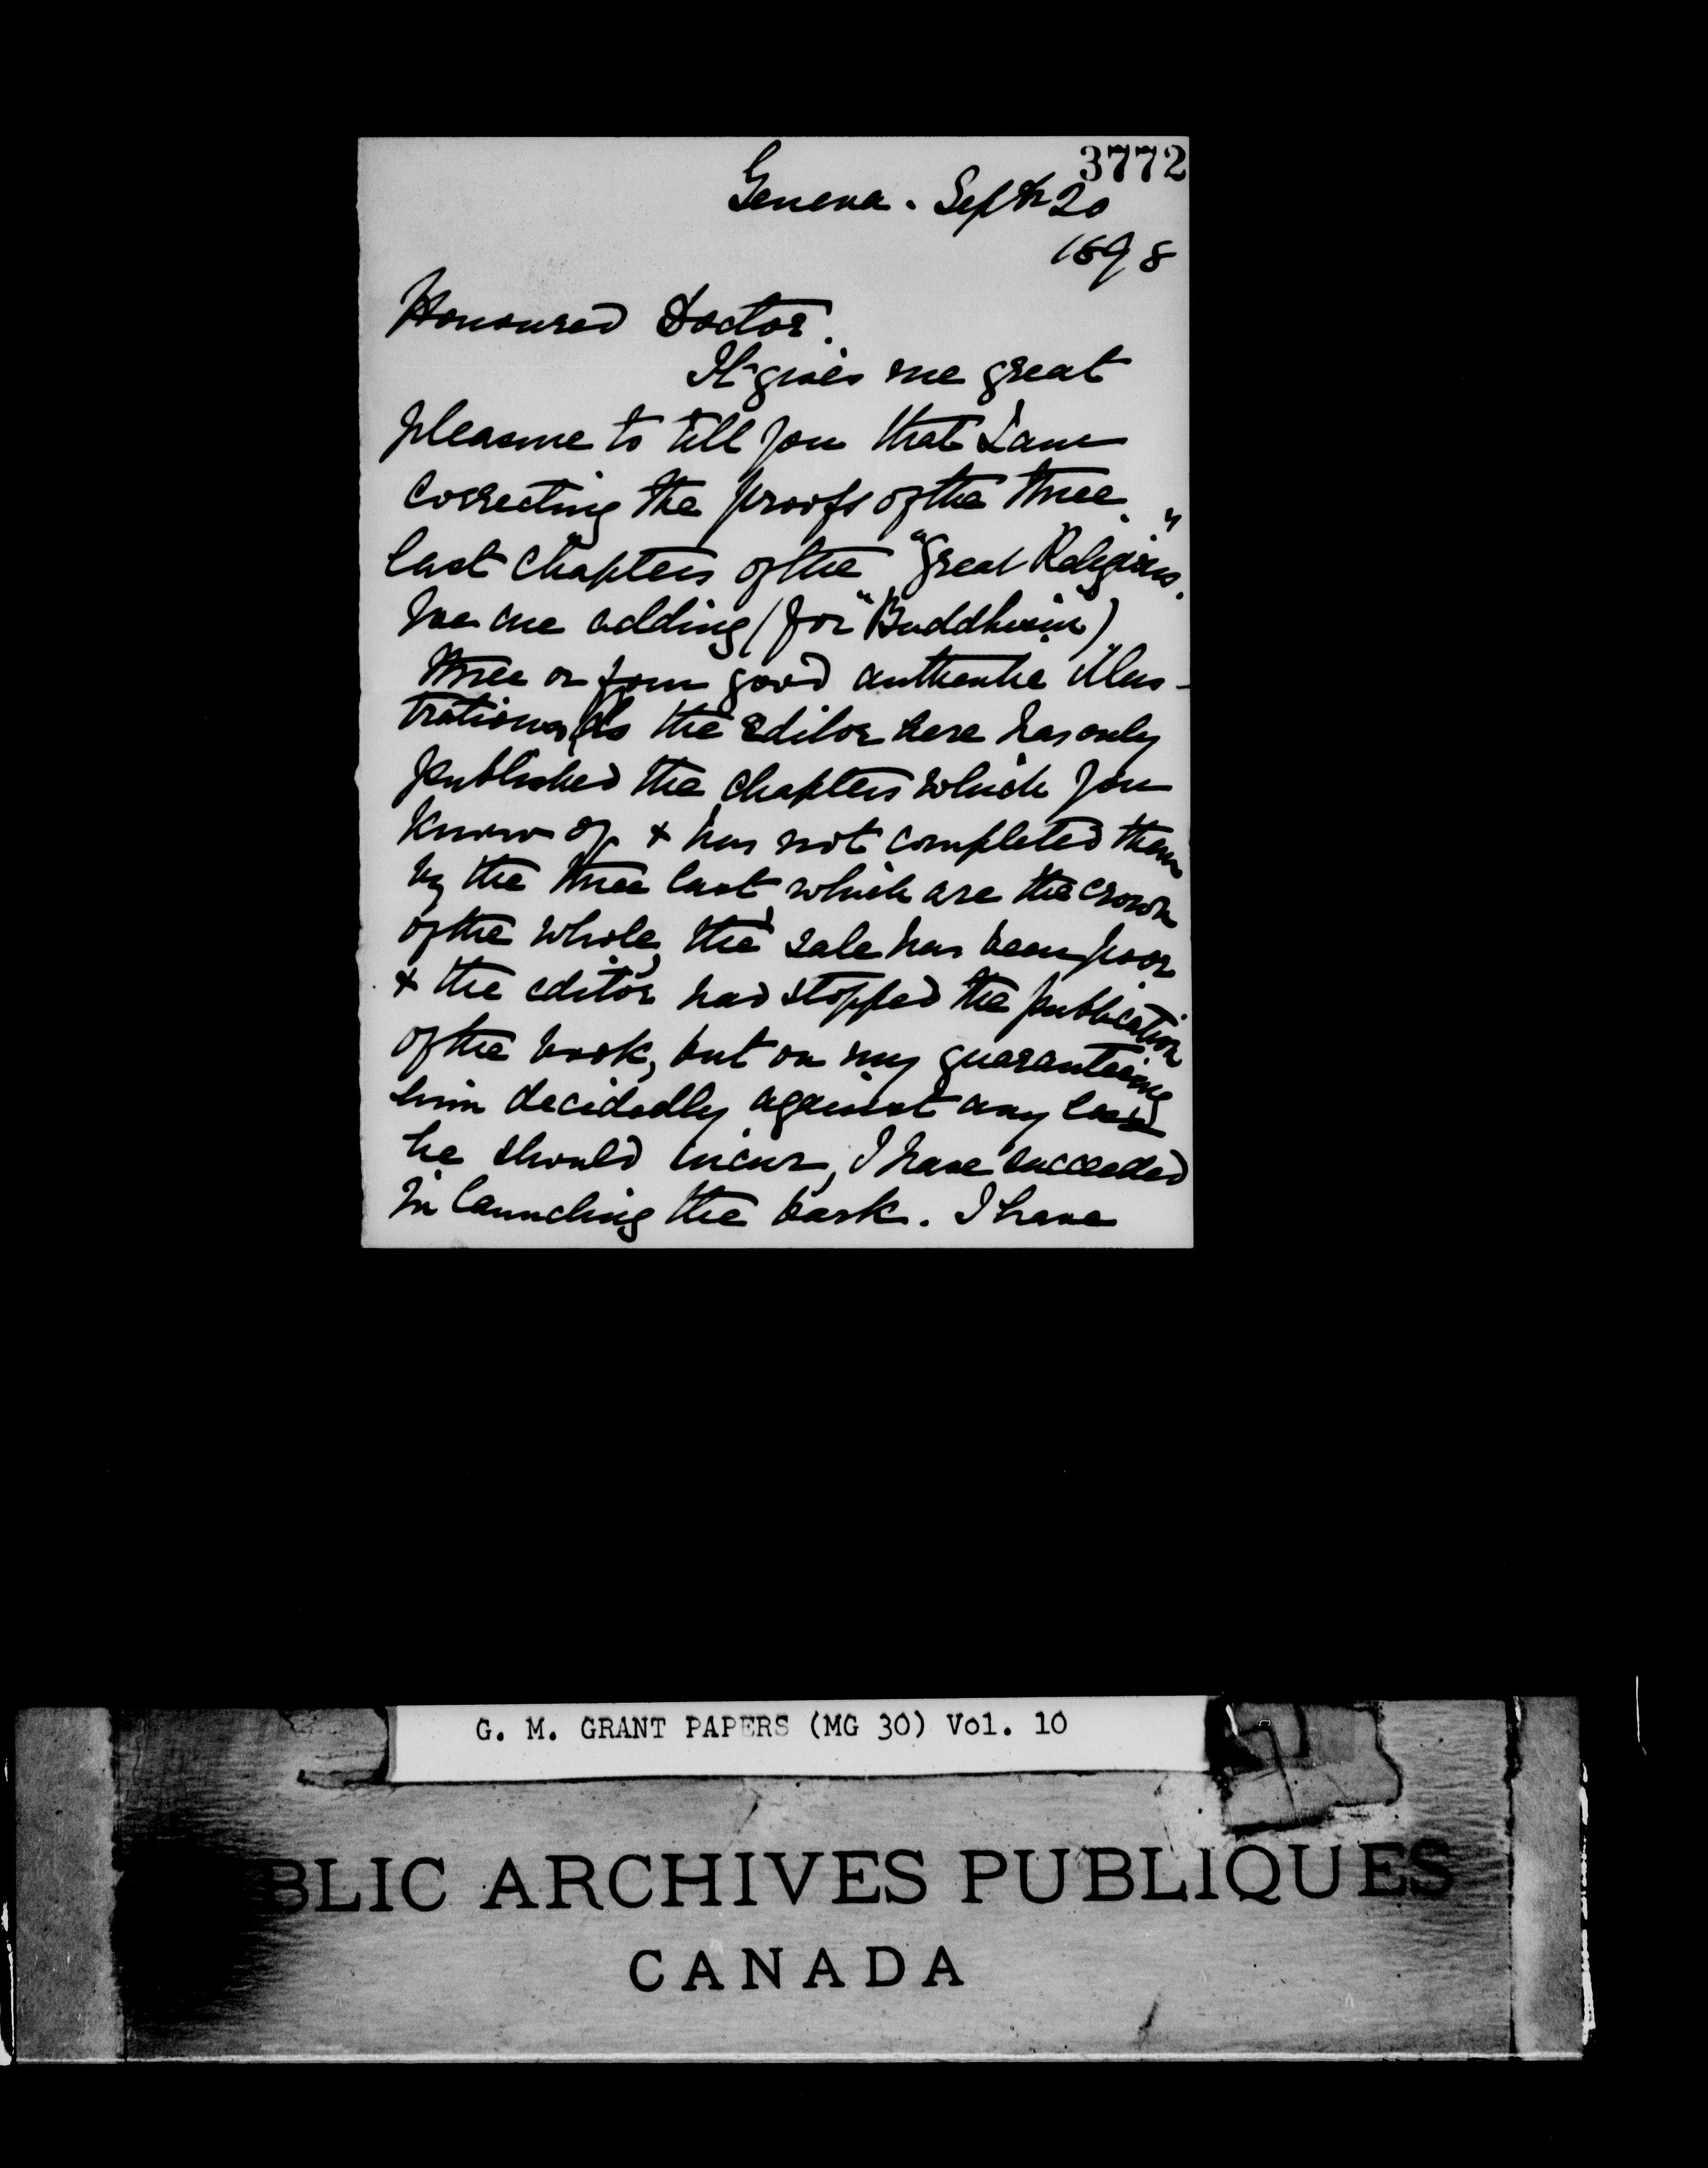 3772
Geneva. Septr 20
1898
Honoured Doctor.
It gives me great
pleasure to tell you that I am
correcting the proofs of the three
last chapters of the "Great Religions".
We are adding (for "Buddhism")
three or four good authentic illus-
trations. As the editor here has only
published the chapters which you
know of & has not completed them
by the three last, which are the crown
of the whole, the sale has been poor
& the editor had stopped the publication
of the book, but on my guaranteeing
him decidedly against any loss
he should incur, I have succeeded
in launching the bark. I have
G. M. GRANT PAPERS (MG 30) Vol. 10
BLIC ARCHIVES PUBLIQUES
CANADA